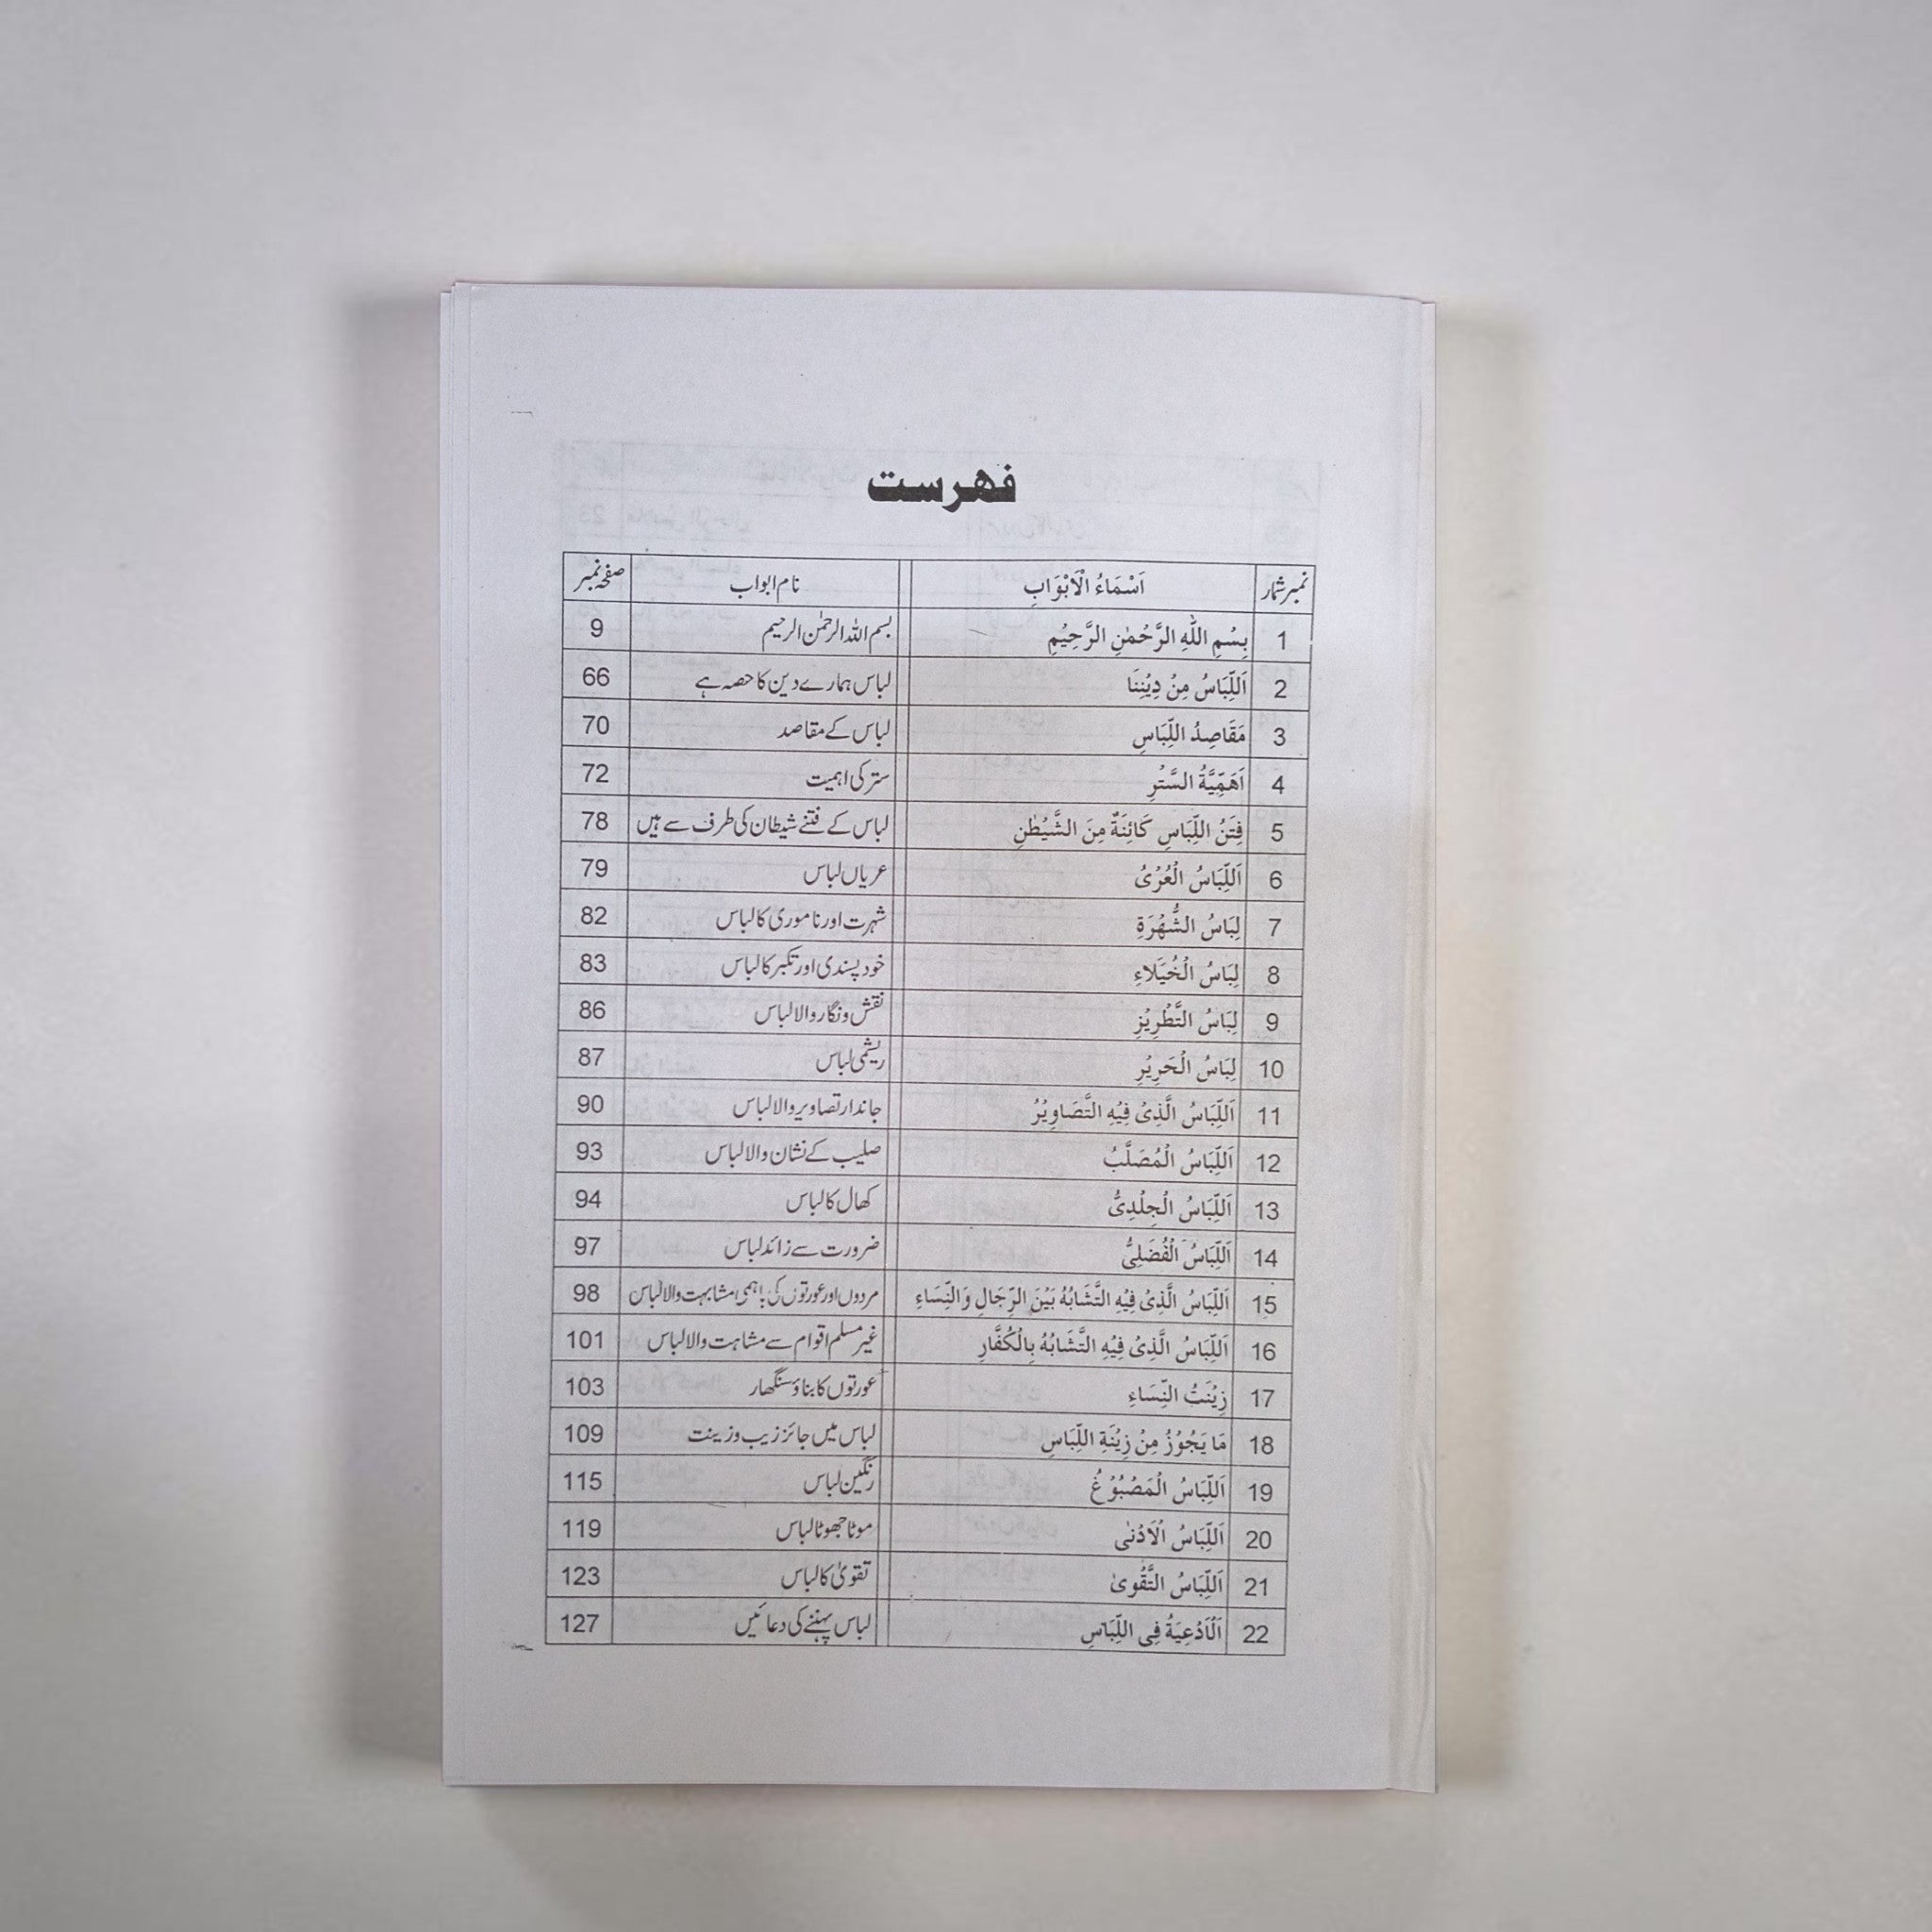 فہرست
نمبر شمار اَسْمَاءُ الْاَبْوَابِ نام ابواب صفحہ نمبر
1 بِسْمِ اللّٰهِ الرَّحْمٰنِ الرَّحِيْمِ بسم اللہ الرحمٰن الرحیم 9
2 اَللِّبَاسُ مِنْ دِيْنِنَا لباس ہمارے دین کا حصہ ہے 66
3 مَقَاصِدُ اللِّبَاسِ لباس کے مقاصد 70
4 اَهَمِّيَّةُ السَّتْرِ ستر کی اہمیت 72
5 فِتَنُ اللِّبَاسِ كَائِنَةٌ مِنَ الشَّيْطٰنِ لباس کے فتنے شیطان کی طرف سے ہیں 78
6 اَللِّبَاسُ الْعُرْىُ عریاں لباس 79
7 لِبَاسُ الشُّهْرَةِ شہرت اور ناموری کا لباس 82
8 لِبَاسُ الْخُيَلاءِ خود پسندی اور تکبر کا لباس 83
9 لِبَاسُ التَّطْرِيْزِ نقش و نگار والا لباس 86
10 لِبَاسُ الْحَرِيْرِ ریشمی لباس 87
11 اَللِّبَاسُ الَّذِىْ فِيْهِ التَّصَاوِيْرُ جاندار تصاویر والا لباس 90
12 اَللِّبَاسُ الْمُصَلَّبُ صلیب کے نشان والا لباس 93
13 اَللِّبَاسُ الْجِلْدِىُّ کھال کا لباس 94
14 اَللِّبَاسُ الْفُضَلِىُّ ضرورت سے زائد لباس 97
15 اَللِّبَاسُ الَّذِىْ فِيْهِ التَّشَابُهُ بَيْنَ الرِّجَالِ وَالنِّسَاءِ مردوں اور عورتوں کی باہمی مشابہت والا لباس 98
16 اَللِّبَاسُ الَّذِىْ فِيْهِ التَّشَابُهُ بِالْكُفَّارِ غیر مسلم اقوام سے مشابہت والا لباس 101
17 زِيْنَتُ النِّسَاءِ عورتوں کا بناؤ سنگھار 103
18 مَا يَجُوْزُ مِنْ زِيْنَةِ اللِّبَاسِ لباس میں جائز زیب و زینت 109
19 اَللِّبَاسُ الْمَصْبُوْغُ رنگین لباس 115
20 اَللِّبَاسُ الْاَدْنٰى موٹا جھوٹا لباس 119
21 اَللِّبَاسُ التَّقْوىٰ تقویٰ کا لباس 123
22 اَلْاَدْعِيَةُ فِى اللِّبَاسِ لباس پہننے کی دعائیں 127